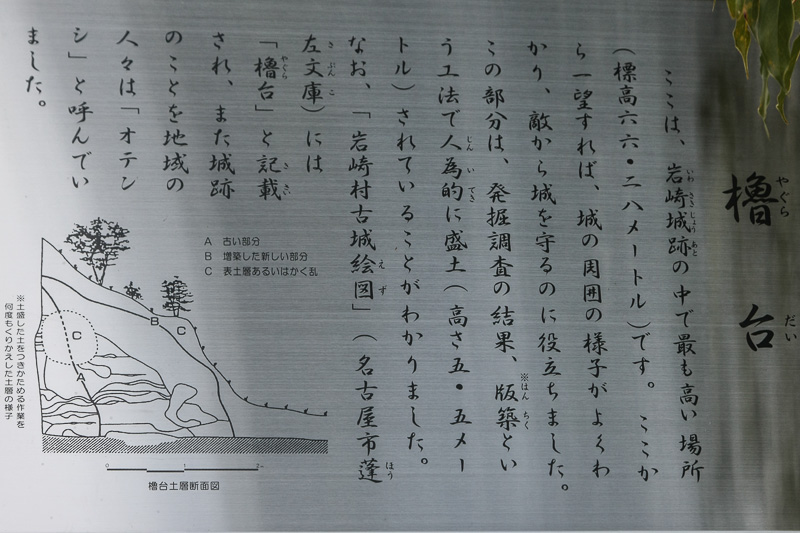 櫓台
やぐらだい
ここは、岩崎城跡の中で最も高い場所
いわさきじょうあと
(標高六六・二八メートル)です。ここか
ら一望すれば、城の周囲の様子がよくわ
かり、敵から城を守るのに役立ちました。
この部分は、発掘調査の結果、版築とい
※はんちく
う工法で人為的に盛土(高さ五・五メー
じんいてき
トル)されていることがわかりました。
なお、「岩崎村古城絵図」(名古屋市蓬
えず
ほう
左文庫)には
さぶんこ
「櫓台」と記載
やぐら
きさい
され、また城跡
のことを地域の
人々は「オテン
シ」と呼んでい
ました。
A 古い部分
B 増築した新しい部分
C 表土層あるいはかく乱
B
C
C
A
※土盛した土をつきかためる作業を
何度もくりかえした土層の様子
0
櫓台土層断面図